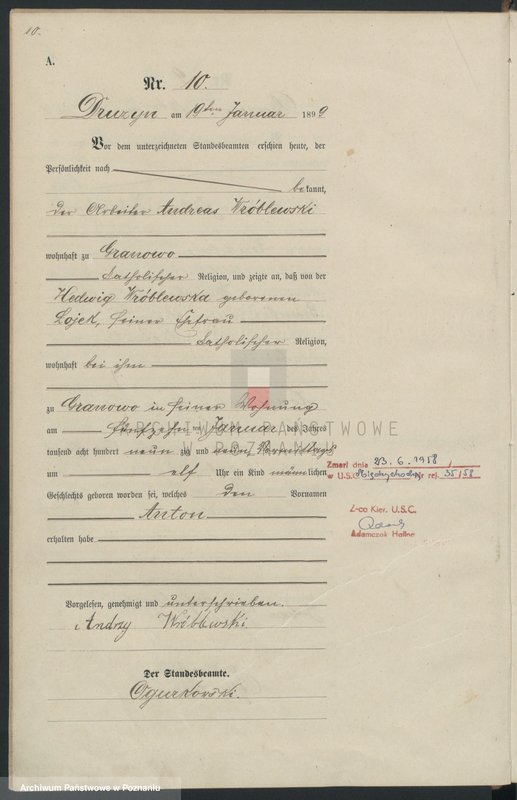 10.
A.
Nr. 10.
Druzyn am 19ten Januar 1899
Vor dem unterzeichneten Standesbeamten erschien heute, der
Persönlichkeit nach
bekannt,
der Arbeiter Andreas Wróblewski
wohnhaft zu Granowo
katholischer Religion, und zeigte an, daß von der
Hedwig Wróblewska geborenen
Lojek, seiner Ehefrau
katholischer Religion,
wohnhaft bei ihm
zu Granowo in seiner Wohnung
am fünfzehn ten Januar des Jahres
tausend acht hundert neun zig und neun Vormittags
um elf Uhr ein Kind männlichen
Geschlechts geboren worden sei, welches den Vornamen
Anton
erhalten habe
Vorgelesen, genehmigt und unterschrieben.
Andrzy Wróblewski
Der Standesbeamte.
Ogurkowski.
Zmarł dnia 23.6.1958
w U.S.C. Międzychód Nr rej. 35/58
Z-ca Kier. U.S.C.
Adamczak Halina
ARCHIWUM PAŃSTWOWE
W POZNANIU
Archiwum Państwowe w Poznaniu